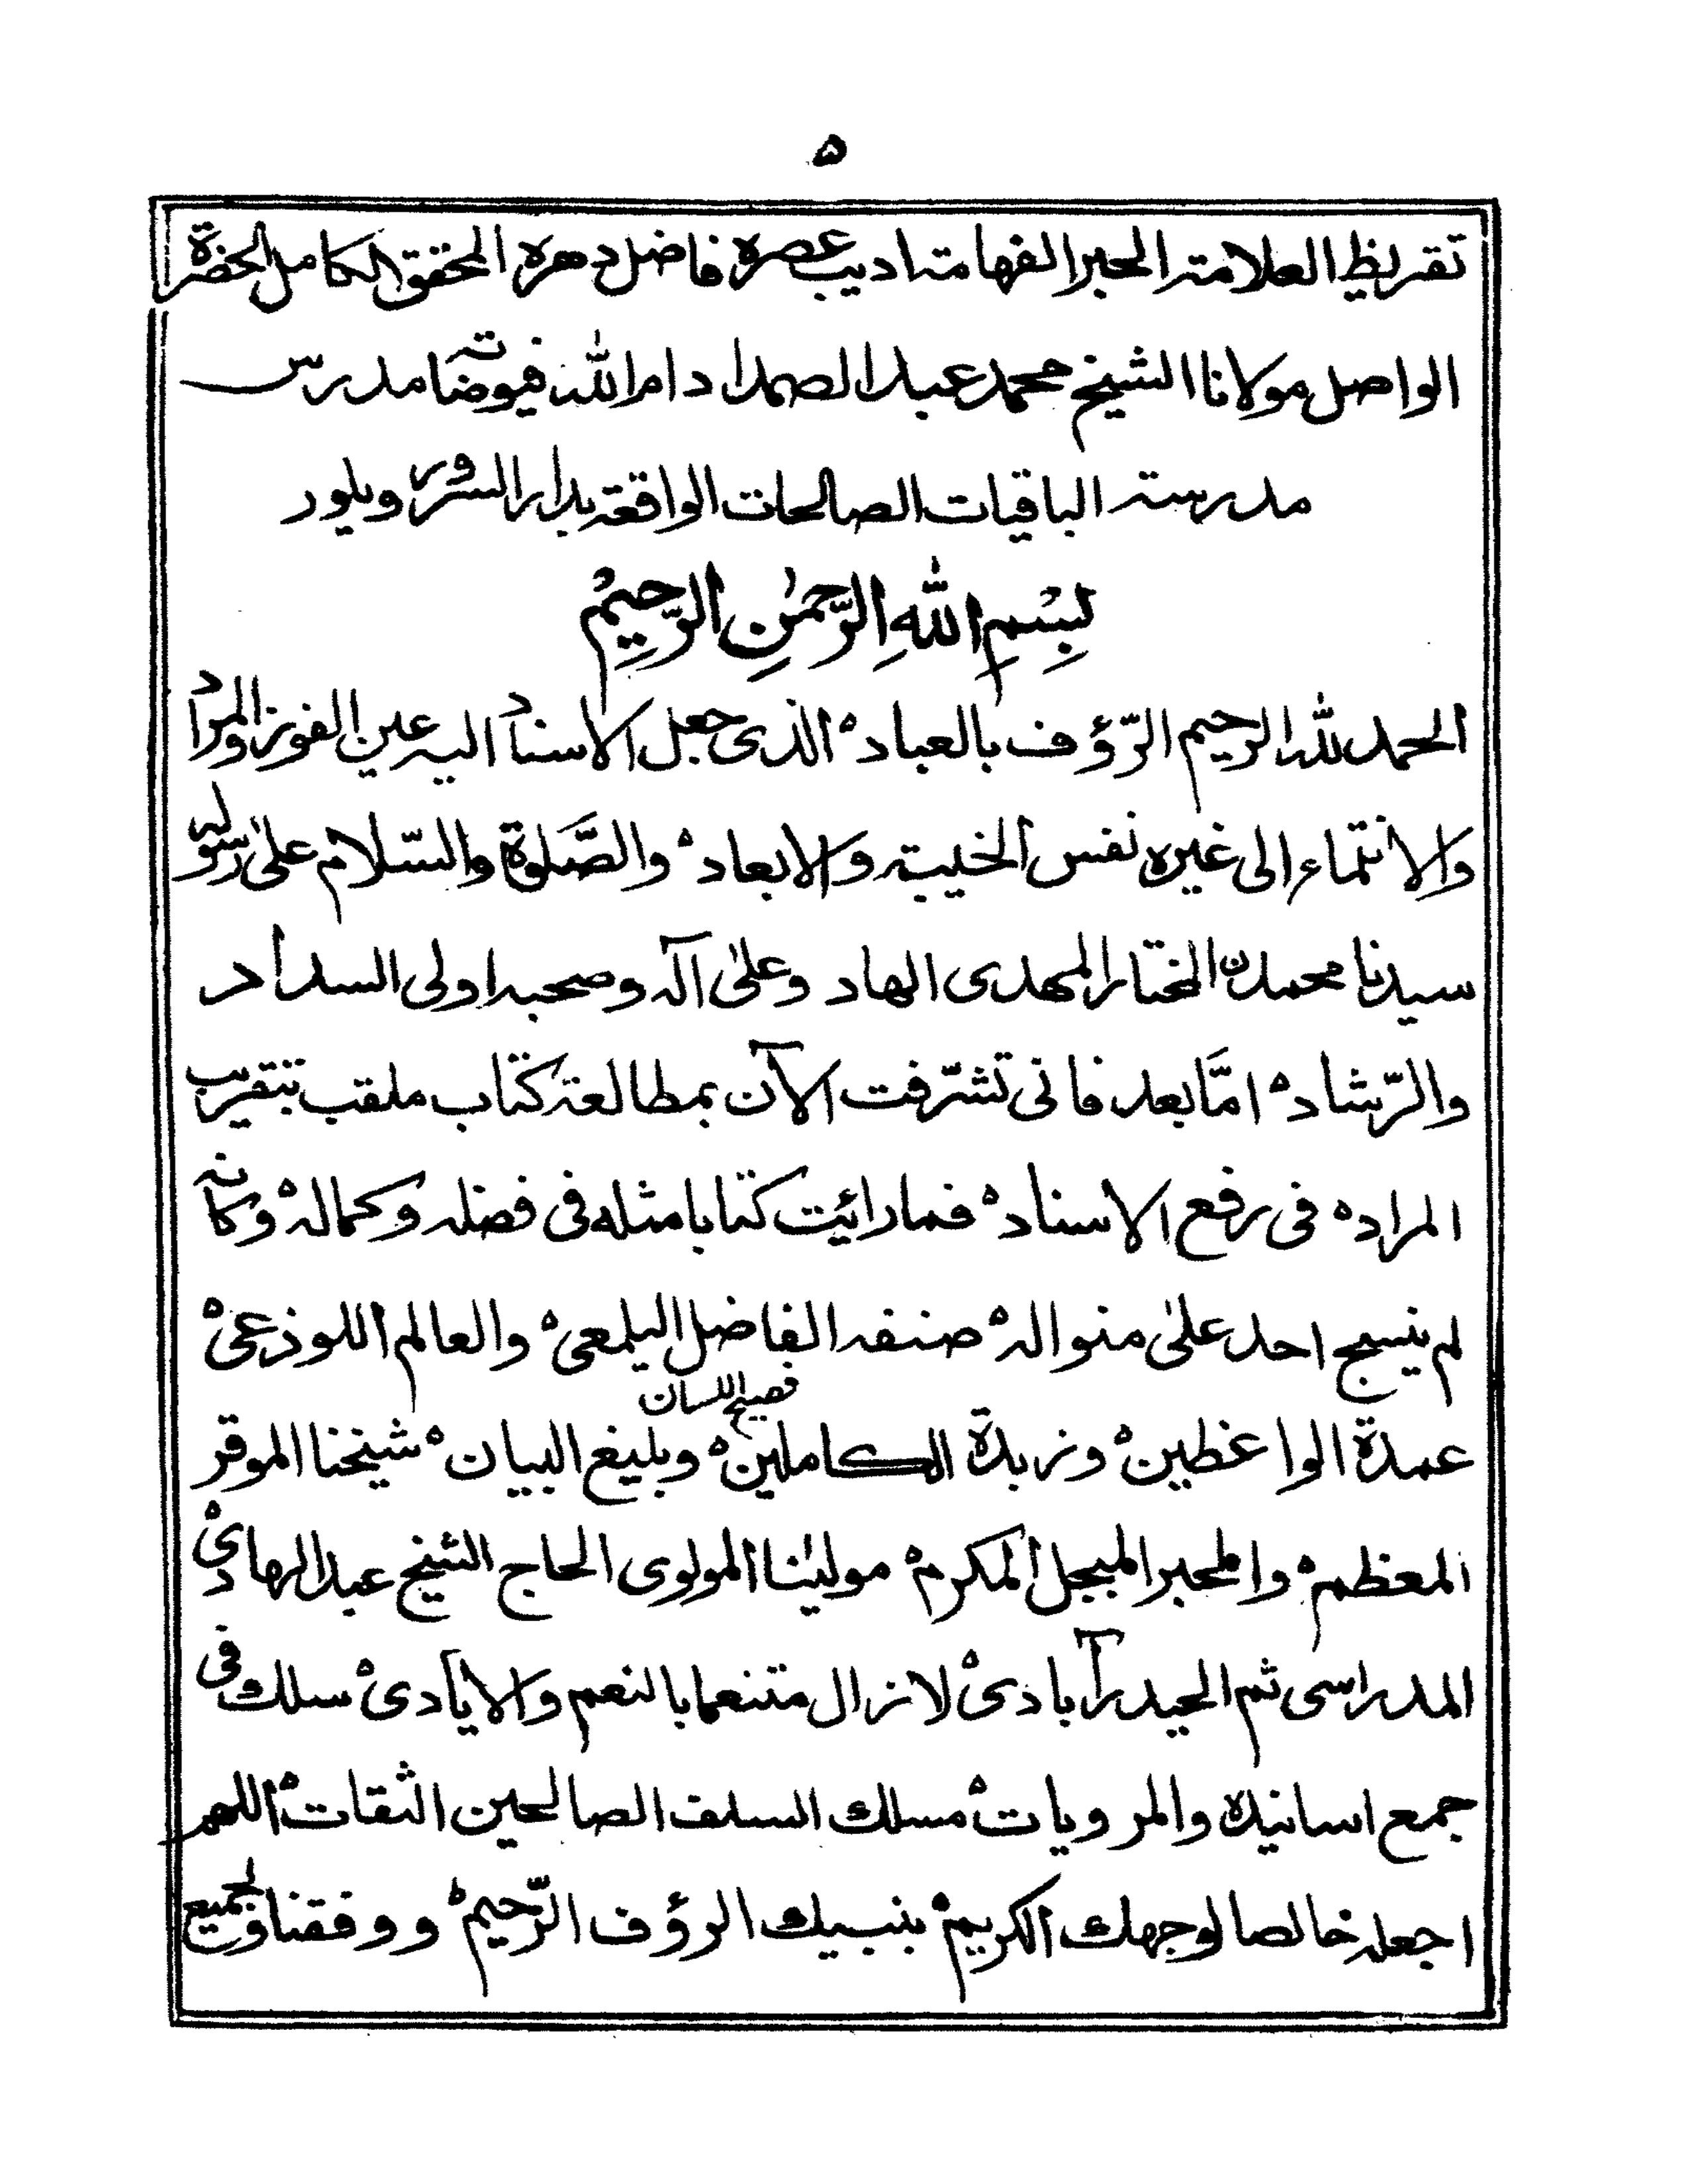 ۵
تقريظ العلامة الحبر الفهامة اديب عصره فاضل دهره المحقق الكامل الحضرة
الواصل مولانا الشيخ محمد عبد الصمد ادام الله فيوضاته مدرس
مدرسة الباقيات الصالحات الواقعة بدار السرور ويلور
بِسْمِ اللهِ الرَّحْمٰنِ الرَّحِيْمِ
الحمد لله الرحيم الرّؤف بالعباد ہ الذى جعل الاسناد اليه عين الفوز والمراد
والانتماء الى غيره نفس الخيبة والابعاد ہ والصَّلوة والسّلام علىٰ رسوله
سيدنا محمدن المختار المهدى الهاد وعلىٰ آله وصحبه اولى السداد
والرّشاد ہ امَّا بعد فانى تشرّفت الآن بمطالعة كتاب ملقب بتقريب
المراد ہ فى رفع الاسناد ہ فما رائيت كتابا مثله فى فضله وكماله ہ وكانه
لم ينسج احد علىٰ منواله ہ صنفه الفاضل اليلمعى ہ والعالم اللوذعى ہ
عمدة الواعظين ہ وزبدة الكاملين ہ فصيح اللسان وبليغ البيان ہ شيخنا الموقر
المعظم ہ والحبر المبجل المكرم ہ مولينا المولوى الحاج الشيخ عبد الهادى ہ
المدراسى ثم الحيدرآبادى ہ لازال متنعما بالنعم والايادى ہ سلك فى
جمع اسانيده والمرويات ہ مسلك السلف الصالحين الثقات ہ اللهم
اجعله خالصا لوجهك الكريم ہ بنبيك الرؤف الرّحيم ہ ووفقنا وجميع